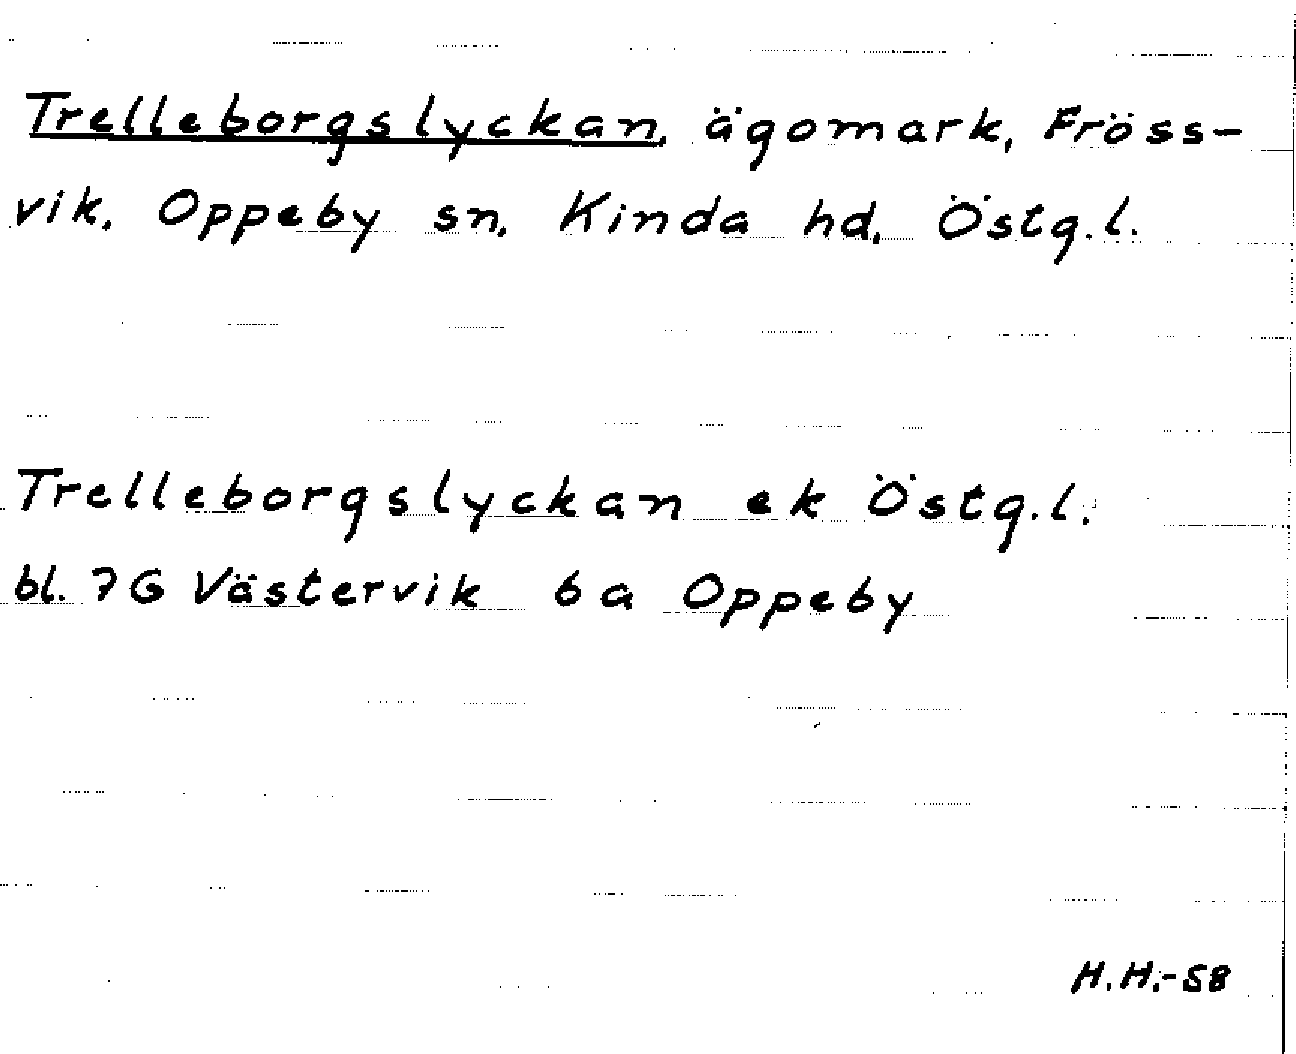 Trelleborgslyckan, ägomark, Fröss-
vik, Oppeby sn, Kinda hd, Östg.l.
Trelleborgslyckan ek Östg.l.
bl. 7G Västervik 6a Oppeby
H.H.-58